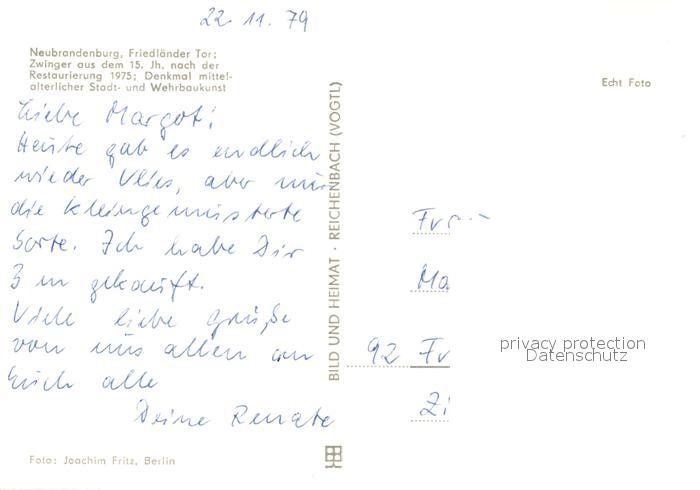 22. 11. 79
Neubrandenburg, Friedländer Tor;
Zwinger aus dem 15. Jh. nach der
Restaurierung 1975; Denkmal mittel-
alterlicher Stadt- und Wehrbaukunst
Echt Foto
Liebe Margot!
Heute gab es endlich
wieder Vlies, aber nur
die kleingemusterte
Sorte. Ich habe Dir
3 m gekauft.
Viele liebe Grüße
von uns allen an
Euch alle
Deine Renate
BILD UND HEIMAT · REICHENBACH (VOGTL)
Fr
Ma
92 Fr
Zi
privacy protection
Datenschutz
Foto: Joachim Fritz, Berlin